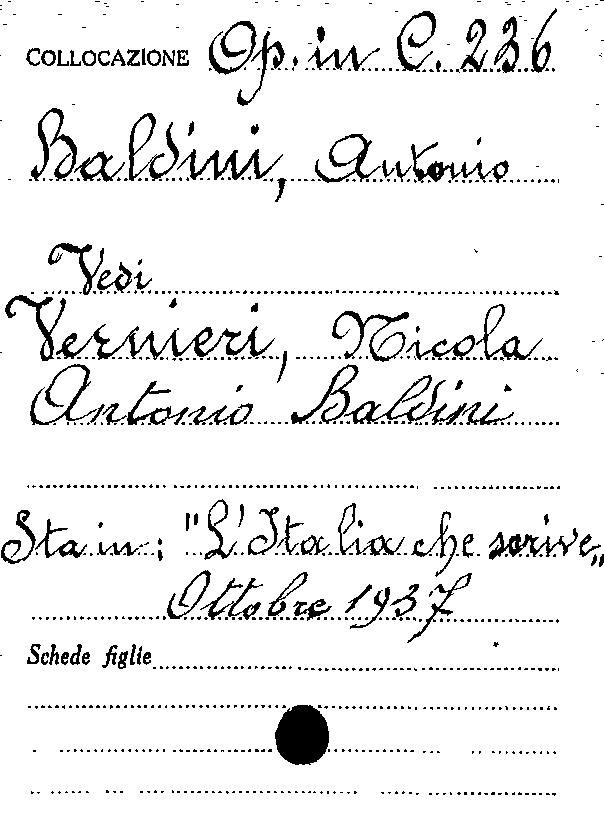 COLLOCAZIONE Op. in C. 236
Baldini, Antonio
Vedi
Vernieri, Nicola
Antonio Baldini
Sta in: "L'Italia che scrive„
Ottobre 1937
Schede figlie